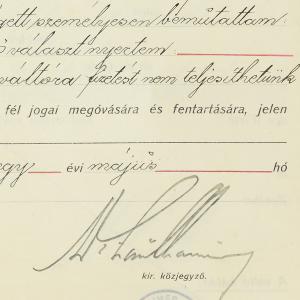 gett személyesen bemutattam:
ő választ nyertem
váltóra fizetést nem teljesíthetünk
fél jogai megóvására és fentartására, jelen
egy évi május hó
Dr
kir. közjegyző.